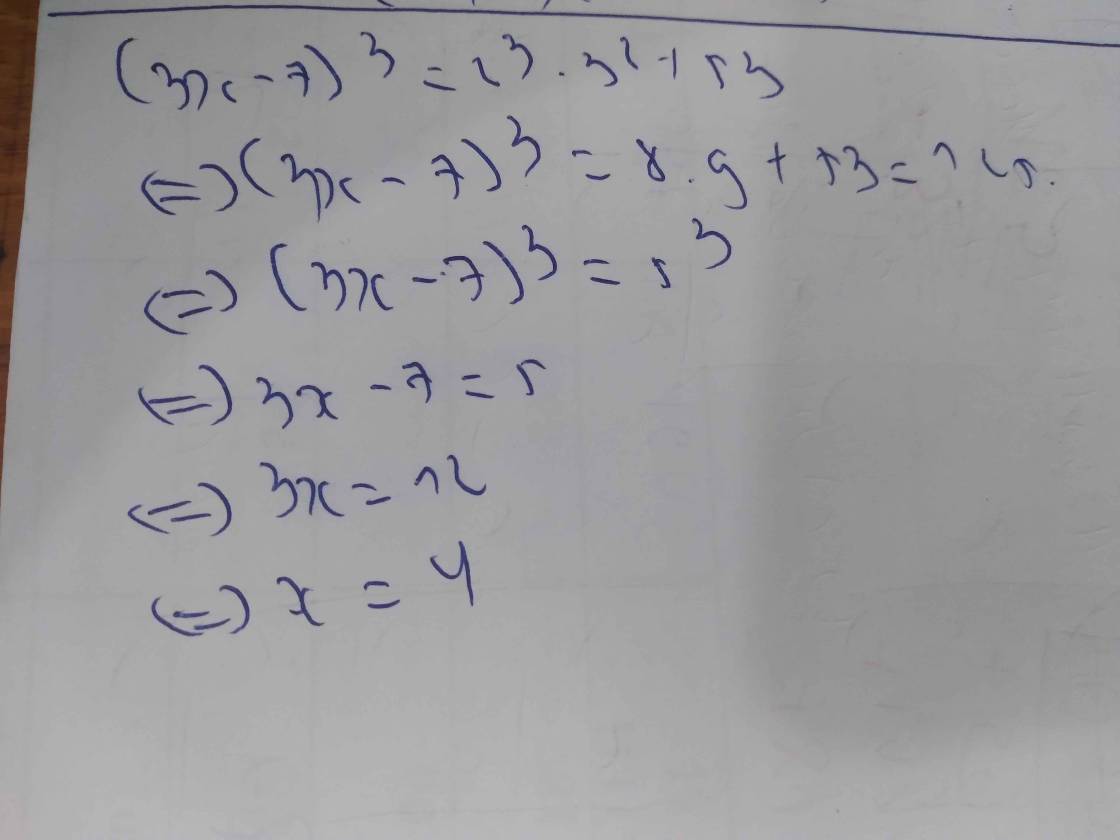 (3x-7)³ = 2³.3² + 53
<=> (3x - 7)³ = 8.9 + 53 = 125.
<=> (3x - 7)³ = 5³
<=> 3x - 7 = 5
<=> 3x = 12
<=> x = 4